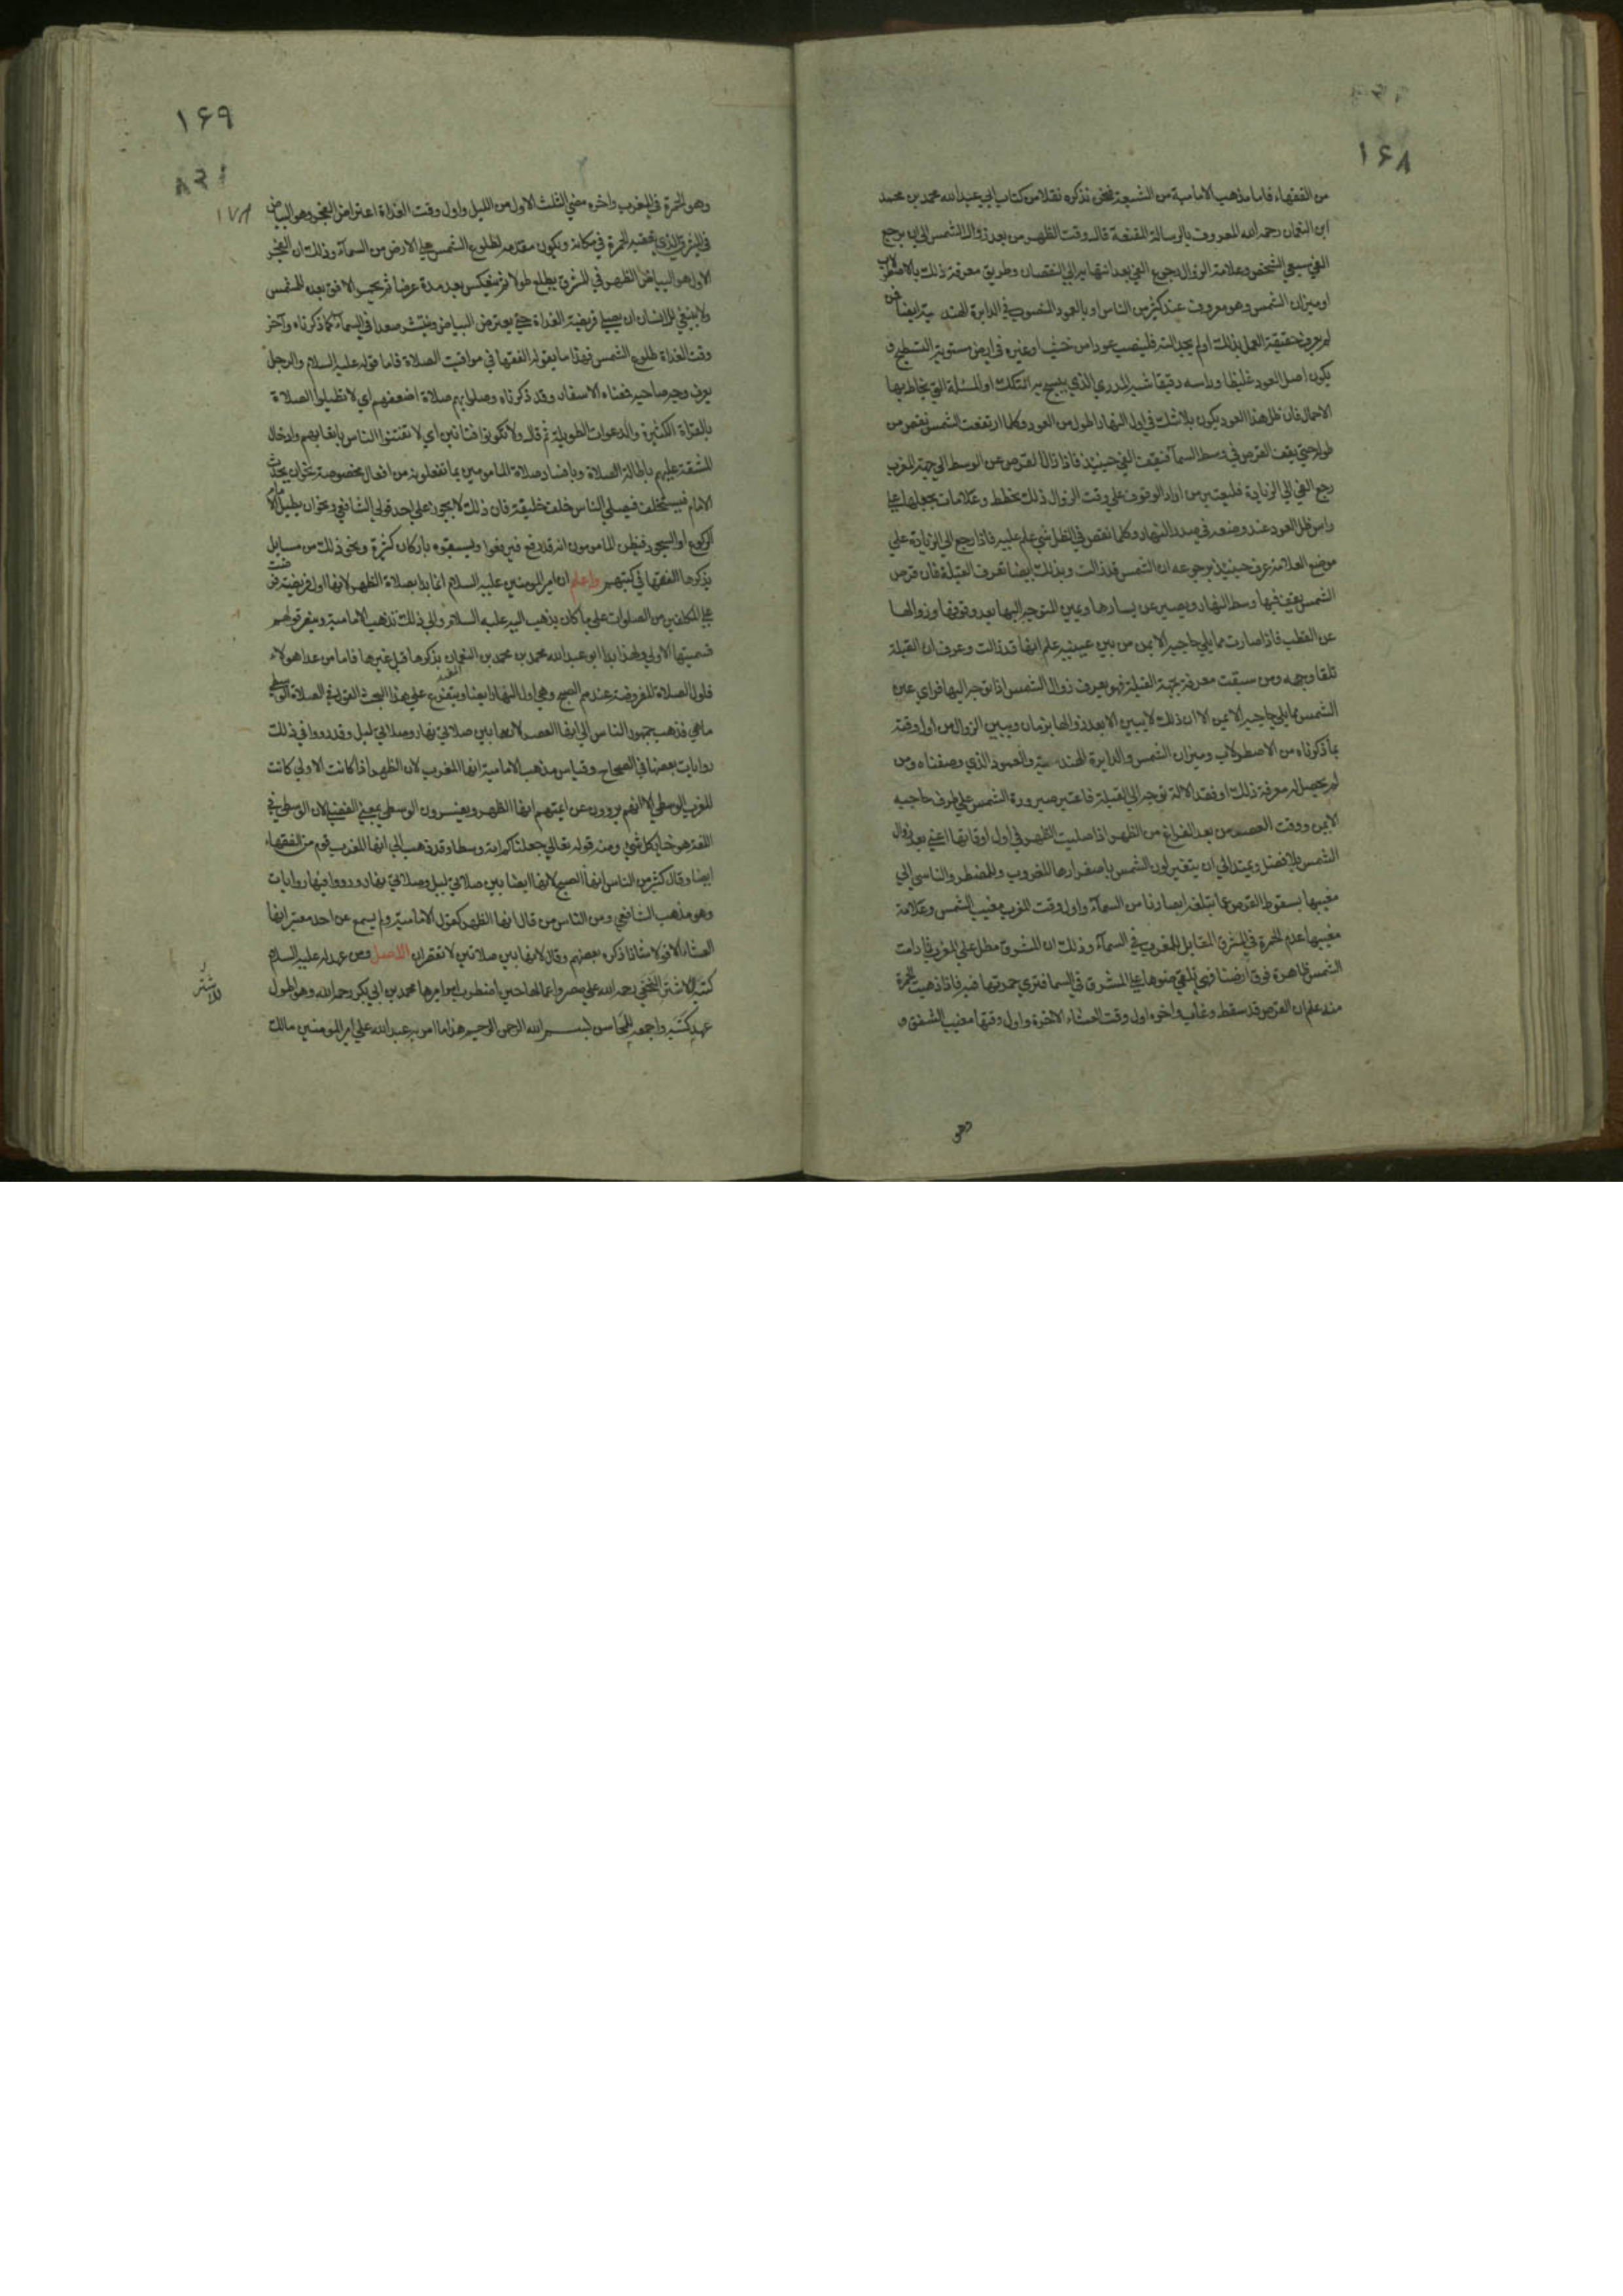 ١۶٨
من الفقهاء فاما مذهب الامامية من الشيعة فنحن نذكره نقلا من كتاب ابي عبدالله محمد بن محمد
ابن النعمان رحمه الله المعروف بالرسالة المقنعة قال وقت الظهر من بعد زوال الشمس الى ان يرجع
الفي سبعي الشخص وعلامة الزوال رجوع الفي بعد انتهايه الي النقصان وطريق معرفة ذلك بالاصطرلاب
اوميزان الشمس وهو معروف عند كثير من الناس او بالعمود المنصوب في الدايرة الهندسية ايضا فمن
لم يعرف حقيقة العمل بذلك اولم يجد آلته فلينصب عودا من خشب او غيره في ارض مستوية التسطيح و
يكون اصل العود غليظا وراسه دقيقا شبه المدري الذي ينسج به التكك او المسلة التي يخاط بها
الاحمال فان ظل هذا العود يكون بلا شك في اول النهار اطول من العود وكلما ارتفعت الشمس نقص من
طوله حتي يقف القرص في وسط السمآ فيقف الفي حينيذ فاذا زال القرص عن الوسط الي جهة المغرب
رجع الفي الي الزيادة فليعتبر من اراد الوقوف علي وقت الزوال ذلك بخطط وعلامات يجعلها علي
راس ظل العود عند وضعه في صدر النهار وكلما نقص في الظل شي علم عليه فاذا رجع الي الزيادة علي
موضع العلامة عرف حينيذ برجوعه ان الشمس قد زالت وبذلك ايضا تعرف القبلة فان قرص
الشمس يقف فيها وسط النهار ويصير عن يسارها ويمين المتوجه اليها بعد وقوفها وزوالها
عن القطب فاذا صارت مما يلي حاجبه الايمن من بين عينيه علم انها قد زالت وعرف ان القبلة
تلقا وجهه ومن سبقت معرفته بجهة القبلة فهو يعرف زوال الشمس اذا توجه اليها فراي عين
الشمس مما يلي حاجبه الايمن الا ان ذلك لا يبين الا بعد زوالها بزمان ويبين الزوال من اول وقته
بما ذكرناه من الاصطرلاب وميزان الشمس والدايرة الهندسية والعمود الذي وصفناه ومن
لم يحصل له معرفة ذلك او فقد الالة توجه الي القبلة فاعتبر صيرورة الشمس علي طرف حاجبه
الايمن ووقت العصر من بعد الفراغ من الظهر اذا صليت الظهر في اول اوقاتها اعني بعد زوال
الشمس بلا فصل ويمتد الي ان يتغير لون الشمس باصفرارها للغروب وللمضطر والناسي الي
مغيبها بسقوط القرص عما تبلغه ابصارنا من السمآء واول وقت المغرب مغيب الشمس وعلامة
مغيبها عدم الحمرة في المشرق المقابل للمغرب في السمآء وذلك ان المشرق مطل علي المغرب فما دامت
الشمس ظاهرة فوق ارضنا فهي تلقي ضوها علي المشرق في السما فتري حمرتها فيه فاذا ذهبت الحمرة
منه علم ان القرص قد سقط وغاب واخره اول وقت العشاء الاخرة واول وقتها مغيب الشفق و
وهو
١۶٩
١٧٨
وهو الحمرة في المغرب واخره مضي الثلث الاول من الليل واول وقت الغداة اعتراض الفجر وهو البياض
في المشرق الذي يعقبه الحمرة في مكانه ويكون مقدمه لطلوع الشمس علي الارض من السمآء وذلك ان الفجر
الاول هو البياض الظهر في المشرق يطلع طولا ثم ينعكس بعد مدة عرضا ثم يحمر الافق بعده للشمس
ولا ينبغي للانسان ان يصلي فريضة الغداة حتي يعترض البياض وينتشر صعدا في السمآء كما ذكرناه وآخر
وقت الغداة طلوع الشمس فهذا ما يقوله الفقها في مواقيت الصلاة فاما قوله عليه السلام والرجل
يعرف وجه صاحبه فمعناه الاسفار وقد ذكرناه وصلوا بهم صلاة اضعفهم اي لا تطيلوا الصلاة
بالقراة الكثيرة والدعوات الطويلة ثم قال ولا تكونوا فتانين اي لا تفتنوا الناس باتعابهم وادخال
المشقة عليهم باطالة الصلاة وبافساد صلاة المامومين بما تفعلونه من افعال مخصوصة نحو ان يحدث
الامام فيستخلف فيصلي الناس خلف خليفته فان ذلك لا يجوز علي احد قولي الشافعي ونحو ان يطيل الامام
الركوع او السجود فيظن المامومون انه قد رفع فيرفعوا ويسبقوه باركان كثيرة ونحو ذلك من مسايل
يذكرها الفقها في كتبهم واعلم ان امير المومنين عليه السلام انما بدا بصلاة الظهر لانها اول فريضة فرضت
علي المكلفين من الصلوات علي ما كان يذهب اليه عليه السلام والي ذلك تذهب الامامية وينصر قولهم
تسميتها الاولي ولهذا بدا ابو عبدالله محمد بن محمد بن النعمان بذكرها قبل غيرها فاما من عدا هولاء
فاول الصلاة المفروضة عندهم الصبح وهي اول النهار ايضا ويتفرع علي هذا البحث القول في الصلاة الوسطي
ماهي فذهب جمهور الناس الي انها العصر لانها بين صلاتي نهار وصلاتي ليل وقد رووا في ذلك
روايات بعضها في الصحاح وقياس مذهب الامامية انها المغرب لان الظهر اذا كانت الاولي كانت
المغرب الوسطي الا انهم يروون عن ايمتهم انها الظهر ويفسرون الوسطي بمعني الفضلي لان الوسطي في
اللغة هو خيار كل شي ومنه قوله تعالي جعلناكم امة وسطا وقد ذهب الي انها المغرب قوم من الفقهاء
ايضا وقال كثير من الناس انها الصبح لانها ايضا بين صلاتي ليل وصلاتي نهار ورووا فيها روايات
وهو مذهب الشافعي ومن الناس من قال انها الظهر كقول الامامية ولم يسمع عن احد معتبر انها
العشاء الا قولا شاذا ذكره بعضهم وقال لانها بين صلاتين لا تقصران الاصل ومن عهد له عليه السلام
كتبه للاشتر النخعي رحمه الله علي مصر واعمالها حين اضطرب امر اميرها محمد بن ابي بكر رحمه الله وهو اطول
عهد كتبه واجمعه للمحاسن بسم الله الرحمن الرحيم هذا ما امر به عبدالله علي امير المومنين مالك
للاشتر